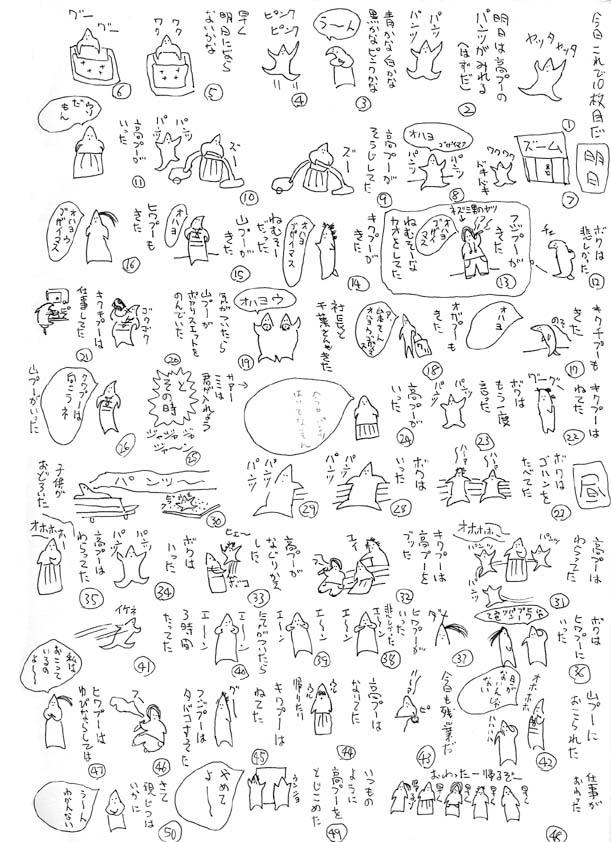 今日これで10枚目だ
明日
ヤッタヤッタ
①
明日は高プーの
パンツがみれる
(はずだ)
②
パンツ
パンツ
青かな白かな
黒かなピンクかな
うーん
③
ピンク
ピンク
④
早く
明日になら
ないかな
ワク
ワク
⑤
グー
グー
⑥
ズーム
⑦
ワクワク
ドキドキ
オハヨ
ゴザイマス
パンツ
パンツ
⑧
高プーが
そうじしてた
⑨
ズー
ズー
⑩
高プーが
いった
パンツ
パンツ
⑪
ボクは
悲しかった
⑫
フジプーが
ねむそーな
カオをしてた
オハヨウ
ゴザイマス
⑬
キクプーが
きた
オハヨウ
ゴザイマス
⑭
ねむそー
だった
山プーが
きた
オハヨ
⑮
ヒワプーも
きた
オハヨウ
ゴザイマス
⑯
キクチプーも
きた
⑰
オハヨ
オガプーも
きた
⑱
社長と
千葉さんがきた
オハヨウ
⑲
気がついたら
山プーが
ポカリスエットを
のんでいた
ゴクゴク
⑳
キクチプーは
仕事してた
㉑
キクプーは
ねてた
グーグー
㉒
ボクは
もう一度
言った
パンツ
パンツ
㉓
高プーが
いった
㉔
と
その時
ジャジャジャ
ジャーン
㉕
山プーがいった
㉖
昼
ボクは
ゴハンを
たべてた
㉗
ボクは
いった
パンツ
パンツ
㉘
パンツ
パンツ
㉙
パンツ〜
子供が
おどろいた
㉚
高プーは
わらってた
オホホホ
パンツ
パンツ
㉛
キクプーは
高プーを
ブッた
エイ
㉜
高プーが
なぐりかえ
した
ヒェ〜
㉝
ボクは
いった
パンツ
パンツ
㉞
高プーは
わらってた
オホホホ
㉟
ボクは
ヒワプーに
いった
㊱
ダ〜
㊲
ヒワプーが
いった
悲しかった
エーン
㊳
エーン
エーン
㊴
気がついたら
3時間
たってた
エーン
エーン
㊵
イケネ
㊶
山プーに
おこられた
オホホホ
ハハハ
㊷
今日も残業だ
ピ
㊸
高プーは
ないてた
帰りたい
㊹
キクプーは
ねてた
グ
㊺
フジプーは
タバコすってた
㊻
ヒワプーは
ゆびならしてる
私は
おこって
いるの
よ〜
㊼
仕事が
おわった
㊽
おわったー帰るぞ〜
いつもの
ように
高プーを
とじこめた
ウンショ
㊾
やめて
よー
さて
現じつは
いかに
う〜ん
わかんない
㊿